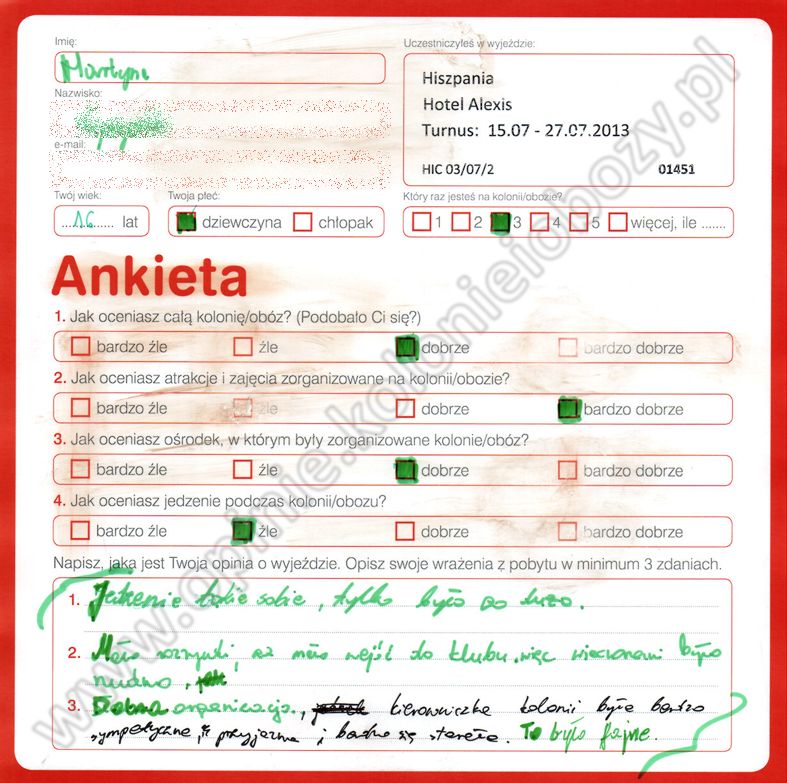 Imię:
Uczestniczyłeś w wyjeździe:
Martyna
Hiszpania
Hotel Alexis
Turnus: 15.07 - 27.07.2013
HIC 03/07/2 01451
Nazwisko:
e-mail:
Twój wiek:
Twoja płeć:
Który raz jesteś na kolonii/obozie?
16 lat
dziewczyna chłopak
1 2 3 4 5 więcej, ile .......
Ankieta
1. Jak oceniasz całą kolonię/obóz? (Podobało Ci się?)
bardzo źle źle dobrze bardzo dobrze
2. Jak oceniasz atrakcje i zajęcia zorganizowane na kolonii/obozie?
bardzo źle źle dobrze bardzo dobrze
3. Jak oceniasz ośrodek, w którym były zorganizowane kolonie/obóz?
bardzo źle źle dobrze bardzo dobrze
4. Jak oceniasz jedzenie podczas kolonii/obozu?
bardzo źle źle dobrze bardzo dobrze
Napisz, jaka jest Twoja opinia o wyjeździe. Opisz swoje wrażenia z pobytu w minimum 3 zdaniach.
1. takie sobie, tylko było
2. Mało rozrywki, wejść do klubu, więc wieczorami było
nudno,
3. Dobra organizacja, kierowniczka kolonii była bardzo
sympatyczna, przyjazna i bardzo się starała. To było fajne.
www.opinie.kolonieiobozy.pl